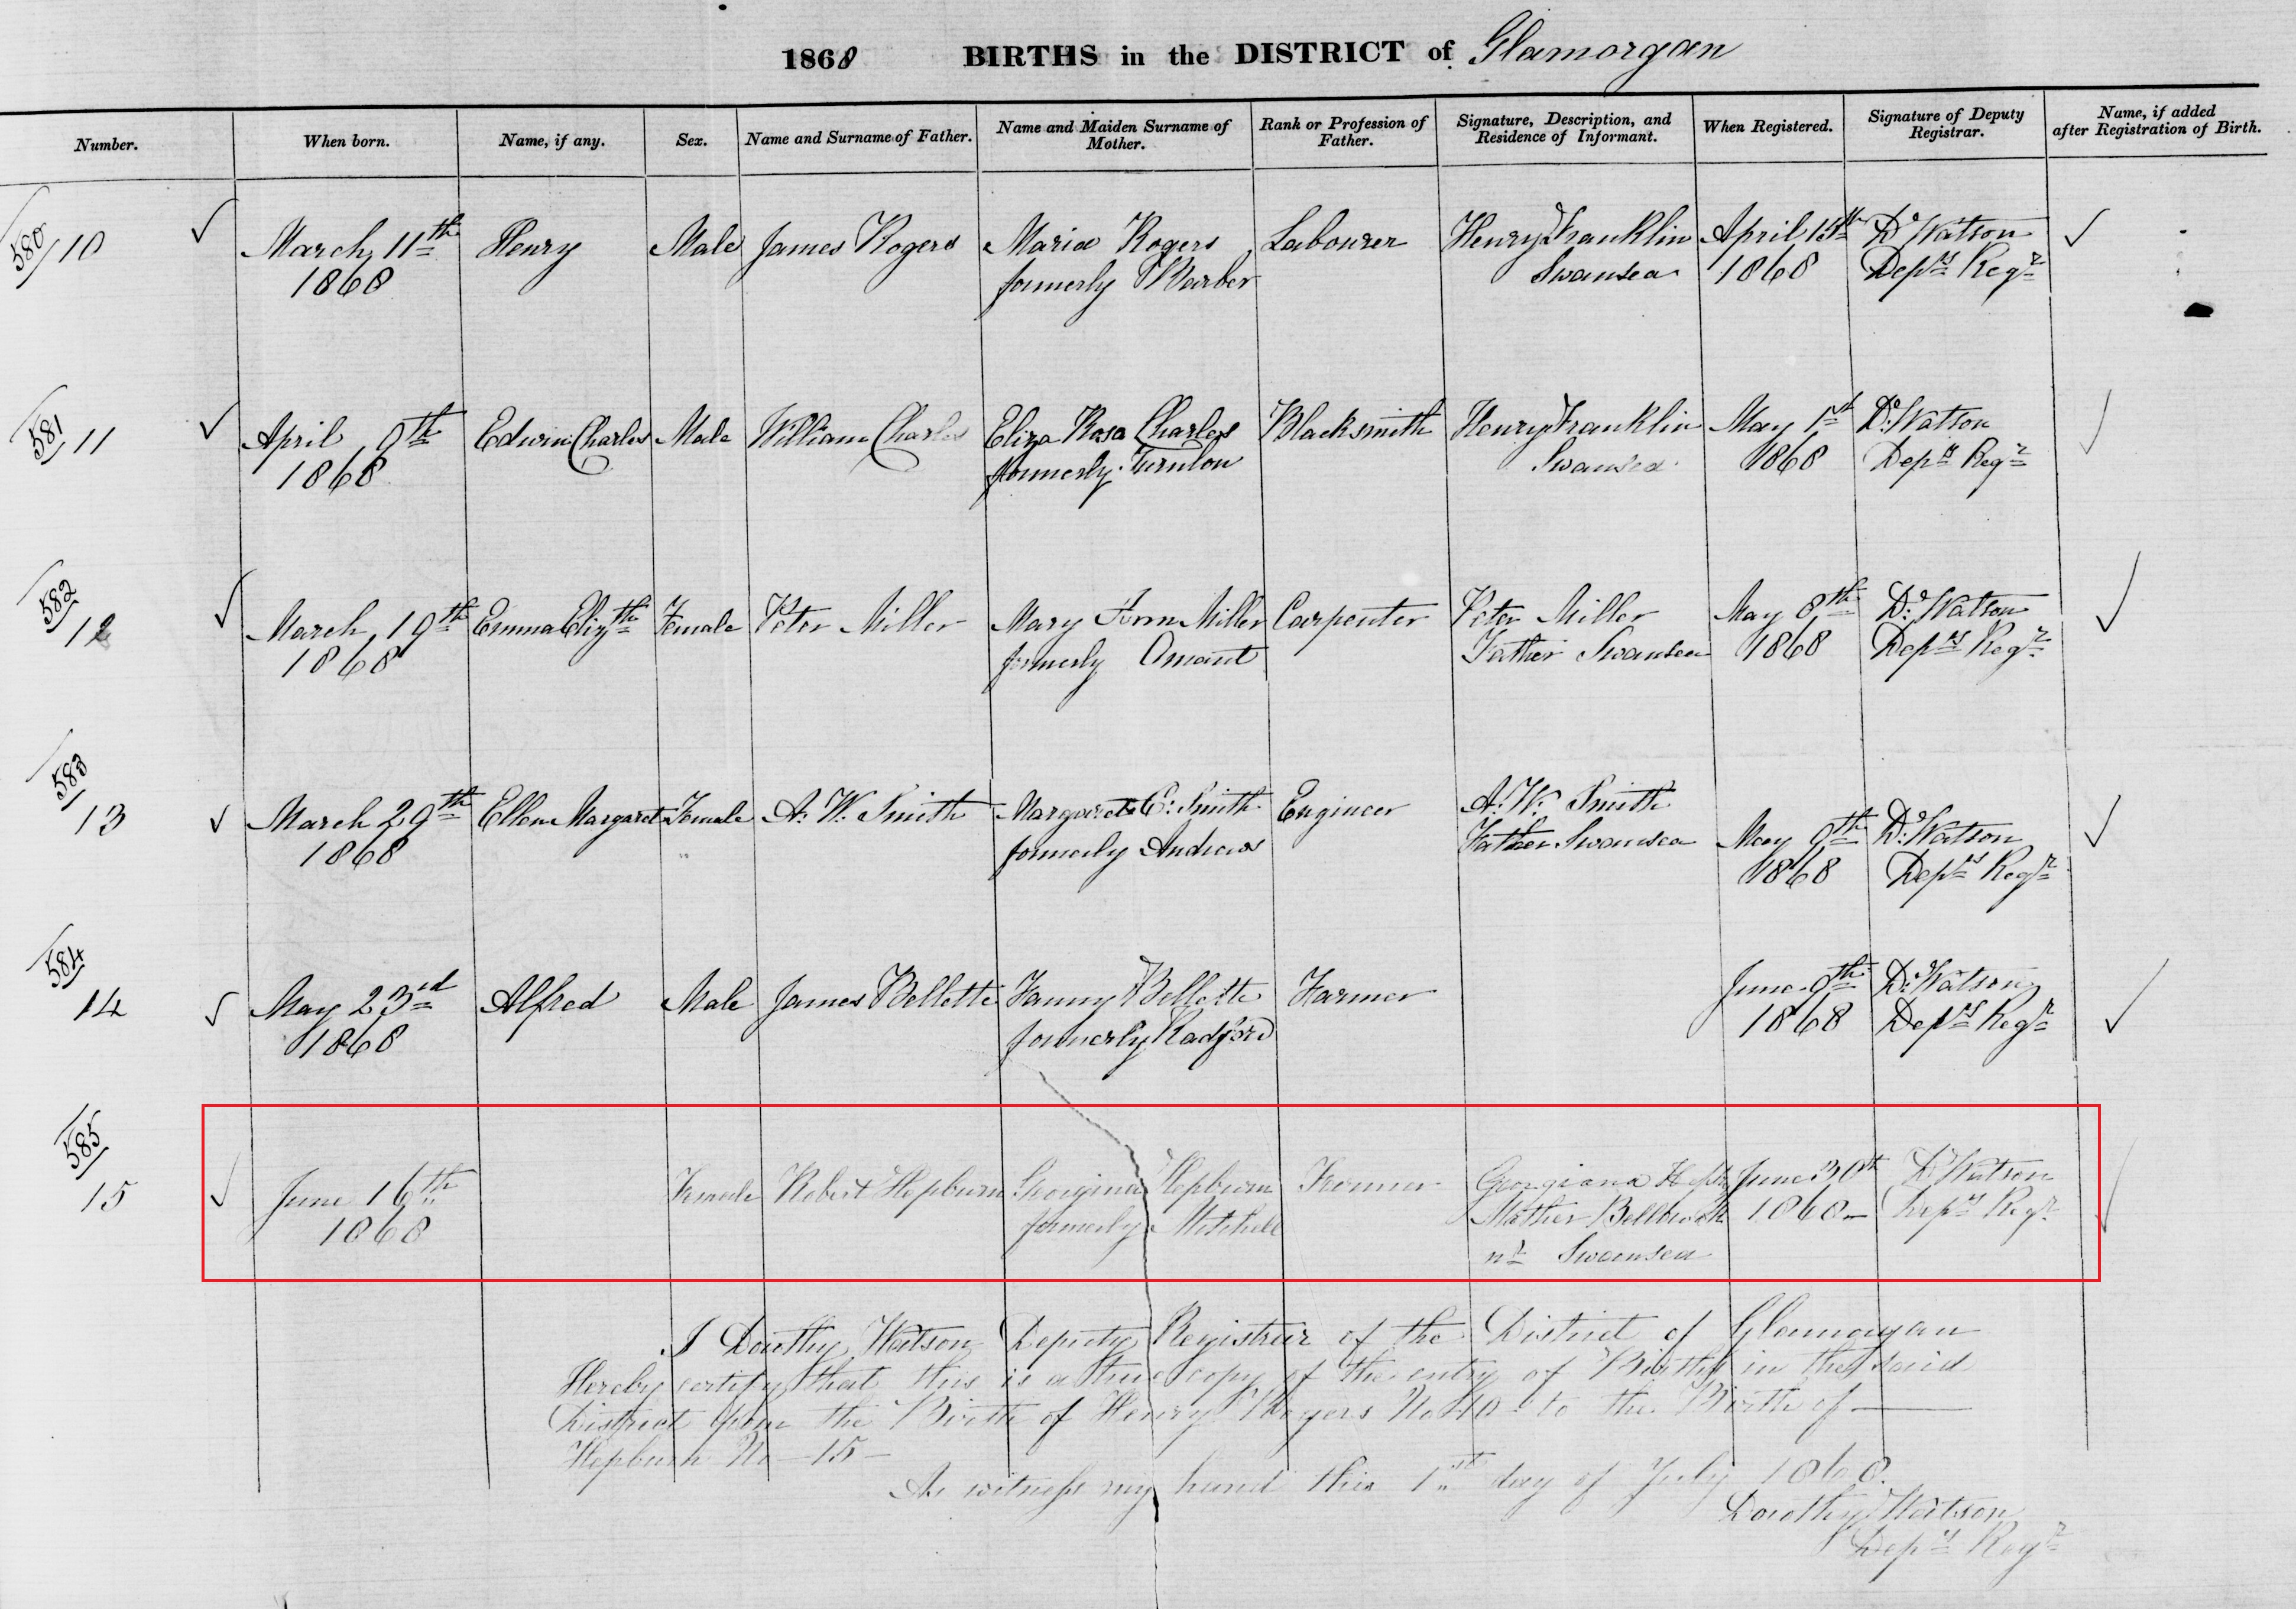 1868 BIRTHS in the DISTRICT of Glamorgan
Number. When born. Name, if any. Sex. Name and Surname of Father. Name and Maiden Surname of Mother. Rank or Profession of Father. Signature, Description, and Residence of Informant. When Registered. Signature of Deputy Registrar. Name, if added after Registration of Birth.
580/10 March 11th Henry Male James Rogers Maria Rogers Labourer Henry Franklin April 15th D. Watson
1868 formerly Swansea 1868 Depy Regr
581/11 April 9th Edwin Charles Male William Charles Eliza Rosa Charles Blacksmith Henry Franklin May 1st D. Watson
1868 formerly Swansea 1868 Depy Regr
582/12 March 19th Emma Elizth Female Peter Miller Mary Ann Miller Carpenter Peter Miller May 8th D. Watson
1868 formerly Amant Father Swansea 1868 Depy Regr
583/13 March 29th Ellen Margaret Female A. W. Smith Margaret E. Smith Engineer A. W. Smith May 9th D. Watson
1868 formerly Andrews Father Swansea 1868 Depy Regr
584/14 May 23rd Alfred Male James Bellette Fanny Bellette Farmer June 9th D. Watson
1868 formerly Radford 1868 Depy Regr
585/15 June 16th Female Robert Hepburn Georgina Hepburn Farmer Georgiana June 30th D. Watson
1868 formerly Mitchell Mother 1868 Depy Regr
nr Swansea
I Dorothy Watson Deputy Registrar of the District of Glamorgan
Hereby certify that this is a true copy of the entry of Births in the said
District from the Birth of Henry Rogers No 10 to the Birth of —
Hepburn No — 15 —
As witness my hand this 1st day of July 1868.
Dorothy Watson
Depy Regr